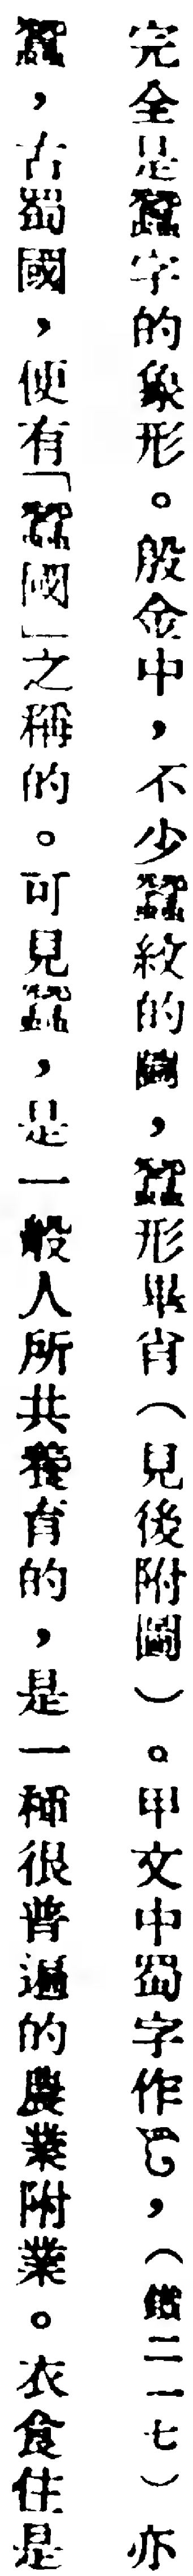 完全是蠶字的象形。殷金中,不少蠶紋的圖,蠶形畢肖(見後附圖)。甲文中蜀字作,(鐵二一七)亦
蠶,古蜀國,便有「蠶國」之稱的。可見蠶,是一般人所共養育的,是一種很普遍的農業附業。衣食住是